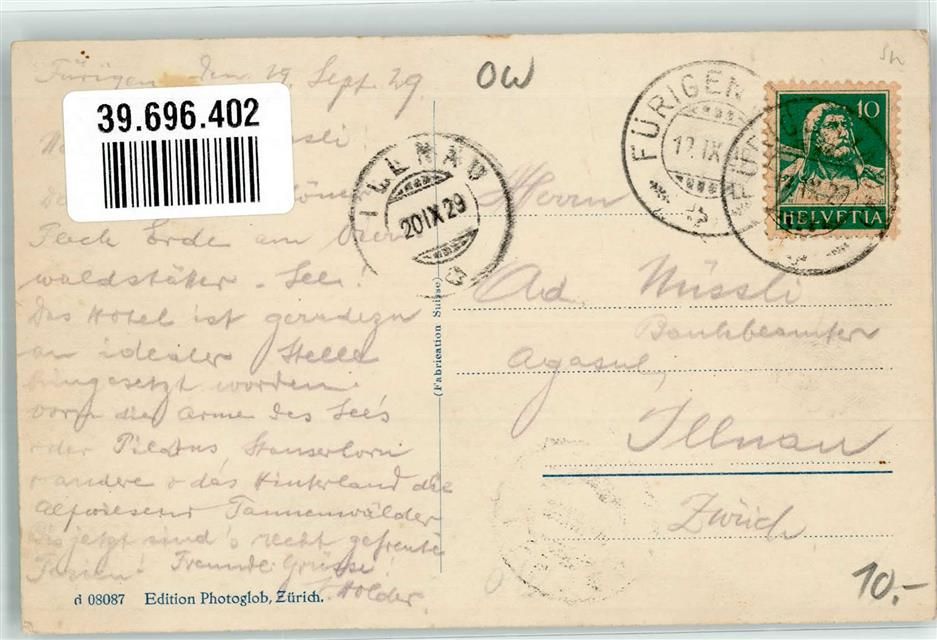 Fürigen den 19. Sept. 29.
39.696.402
OW
FÜRIGEN
IX
10
HELVETIA
ILLNAU
20 IX 29
Herrn
Fleck Erde am Vierwaldstäter - See!
Das Hotel ist geradezu
an idealer Stelle
hingesetzt worden
vorn die Arme des See's
der Pilatus, Stanserhorn
andere & das Hinterland die
Alpwiesen Tannenwälder
Bis jetzt sind's recht gefreute
Ferien! Freundl. Grüsse
Holder.
Ad. Müssli
Bankbeamter
Agasul,
Illnau
Zürich
(Fabrication Suisse)
d 08087 Edition Photoglob, Zürich.
10.-